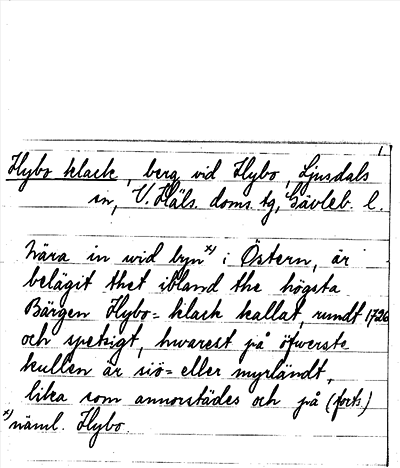 1.
Hybo klack, berg, vid Hybo, Ljusdals
sn, V. Häls. doms. tg, Gävleb. l.
Nära in wid byn x) i Östern, är
belägit thet ibland the högsta
Bärgen Hybo=klack kallat, rundt 1726
och spetsigt, hwarest på öfwerste
kullen är siö= eller myrländt,
lika som annorstädes och på (forts.)
x) näml. Hybo.